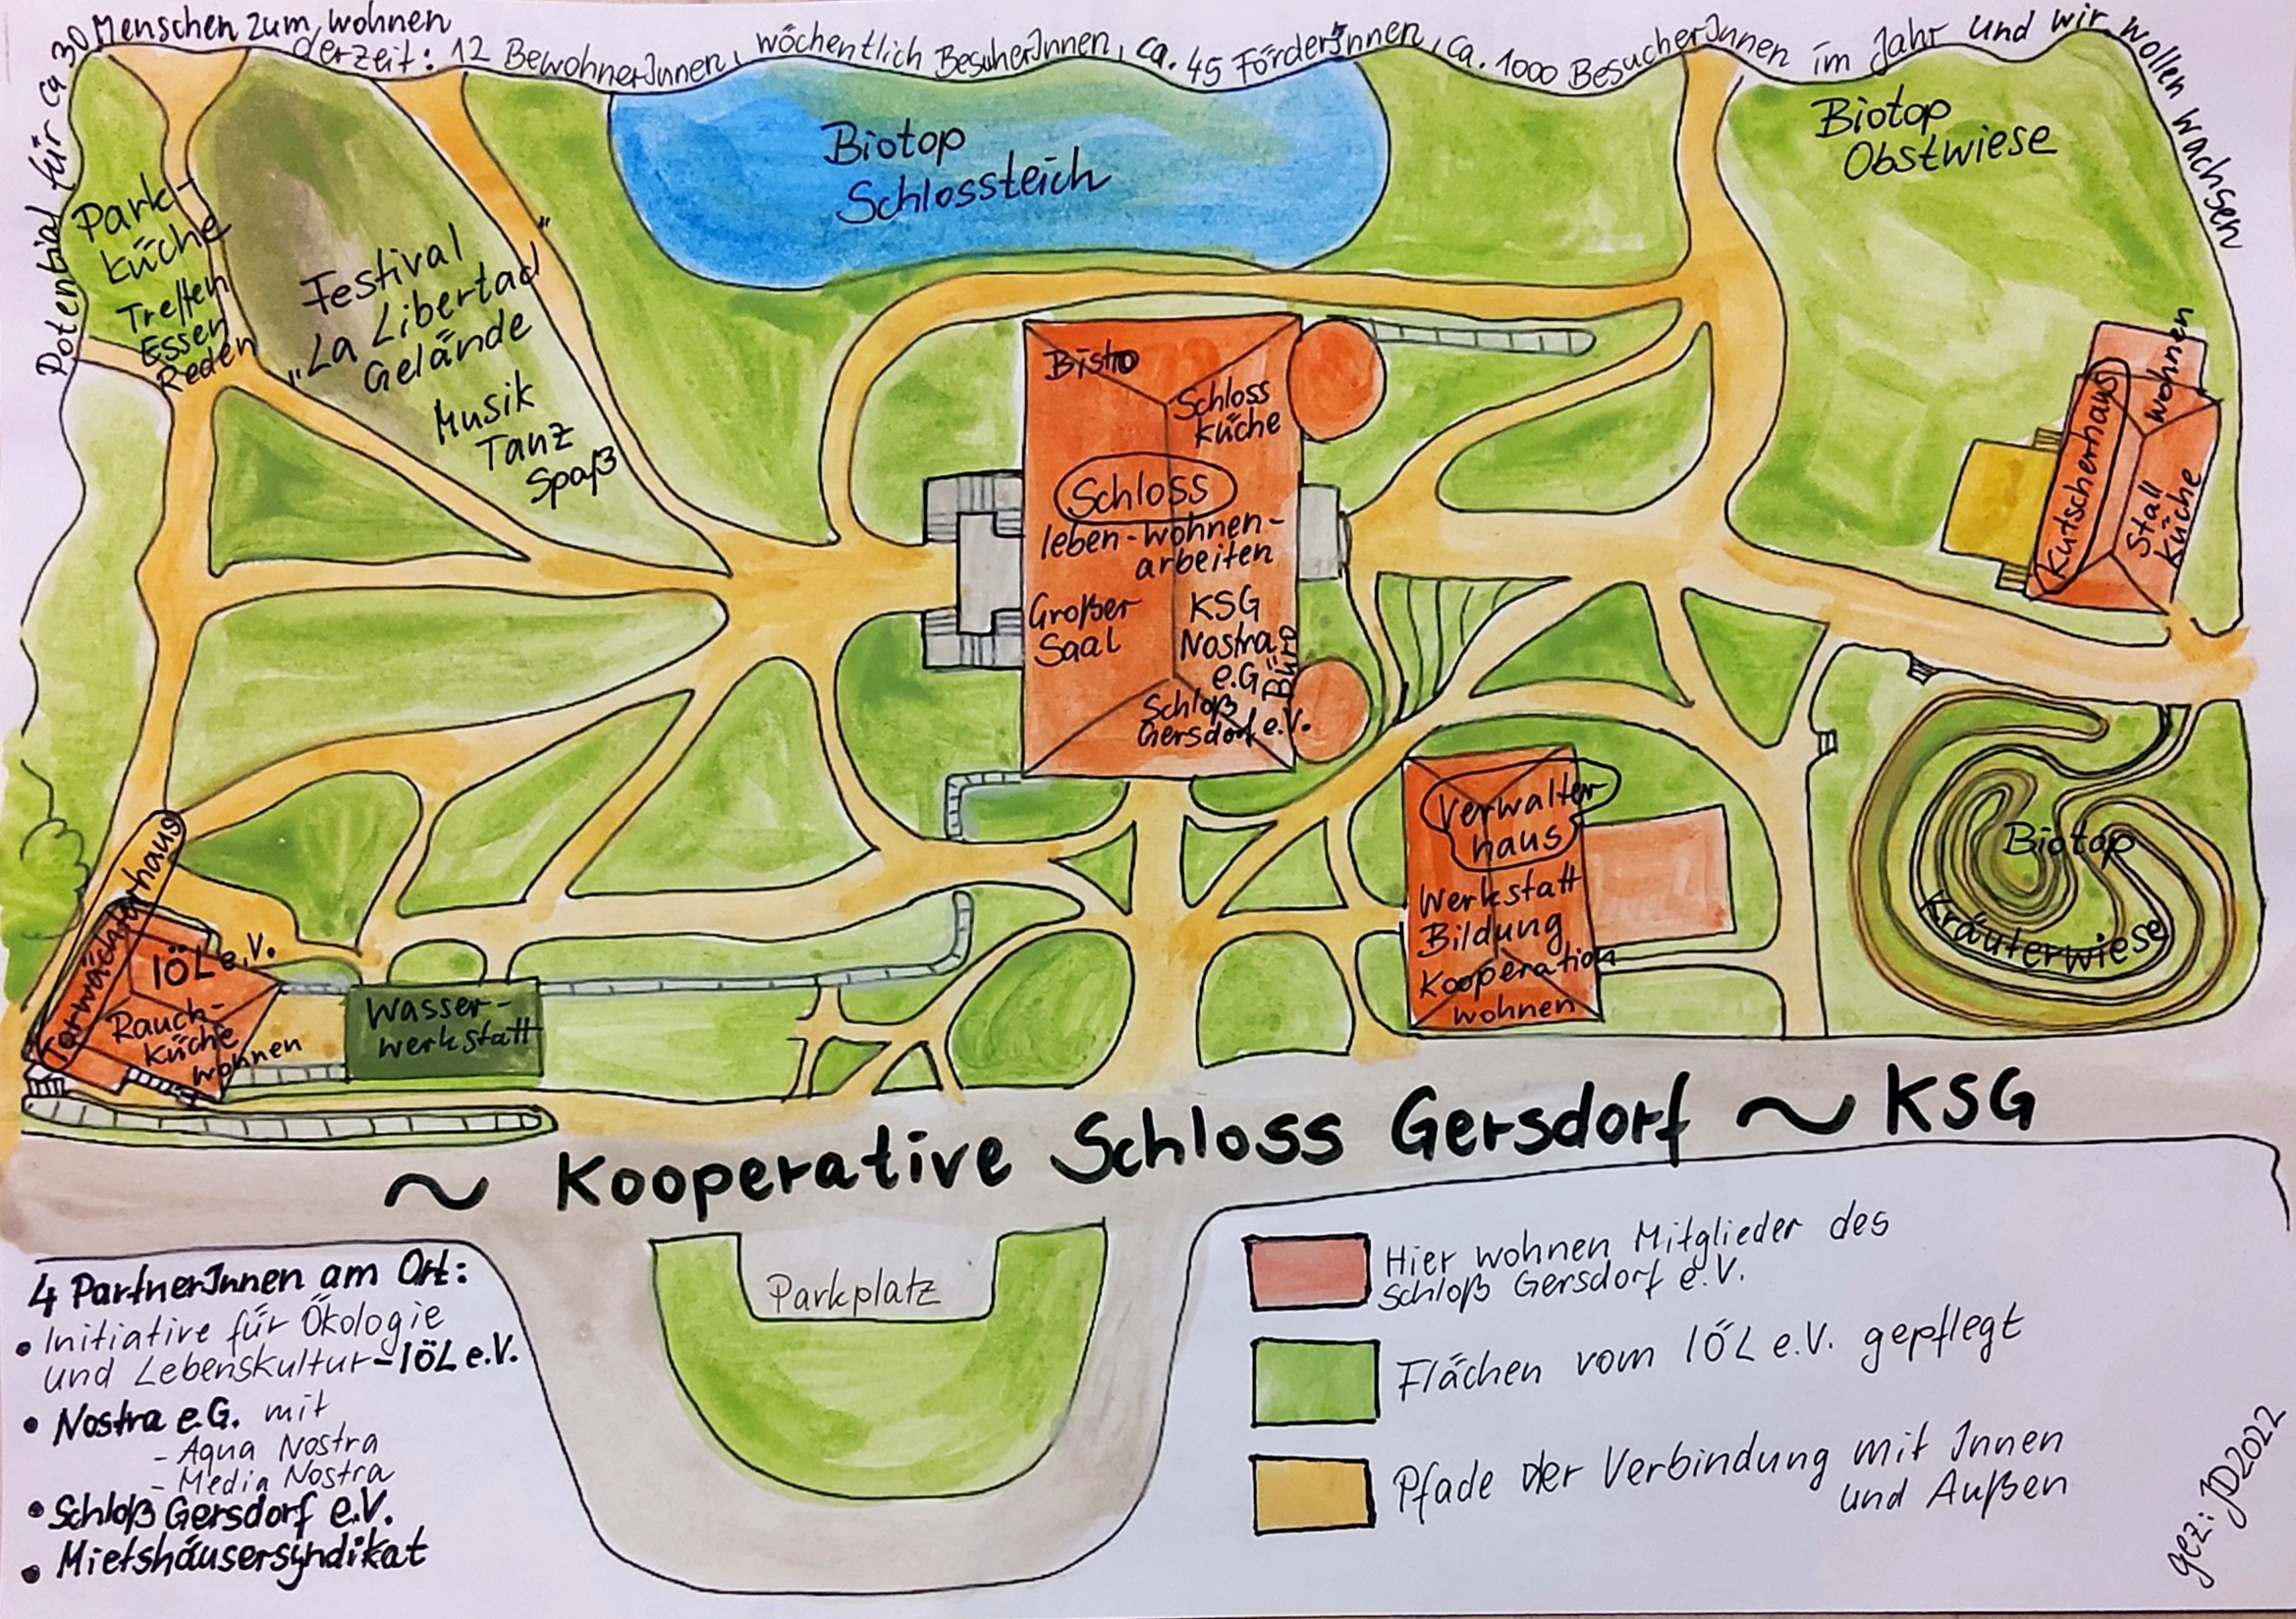 Potential für ca 30 Menschen zum wohnen
derzeit: 12 BewohnerInnen, wöchentlich BesuherInnen, ca. 45 FörderInnen, ca. 1000 BesucherInnen im Jahr und wir wollen wachsen
Park-
küche
Treffen
Essen
Reden
Festival
"La Libertad"
Gelände
Musik
Tanz
Spaß
Biotop
Schlossteich
Biotop
Obstwiese
Bistro
Schloss
küche
Schloss
leben-wohnen-
arbeiten
Großer
Saal
KSG
Nostra
e.G
Büro
Schloß
Gersdorf e.V.
Kutscherhaus
wohnen
Stall
küche
Verwalter
haus
Werkstatt
Bildung
Kooperation
wohnen
Biotop
Kräuterwiese
Torwächterhaus
IÖL e.V.
Rauch-
küche
wohnen
Wasser-
werkstatt
~ Kooperative Schloss Gersdorf ~ KSG
Parkplatz
4 PartnerInnen am Ort:
• Initiative für Ökologie
und Lebenskultur-IÖL e.V.
• Nostra e.G. mit
- Aqua Nostra
- Media Nostra
• Schloß Gersdorf e.V.
• Mietshäusersyndikat
Hier wohnen Mitglieder des
Schloß Gersdorf e.V.
Flächen vom IÖL e.V. gepflegt
Pfade der Verbindung mit Innen
und Außen
gez: JD2022